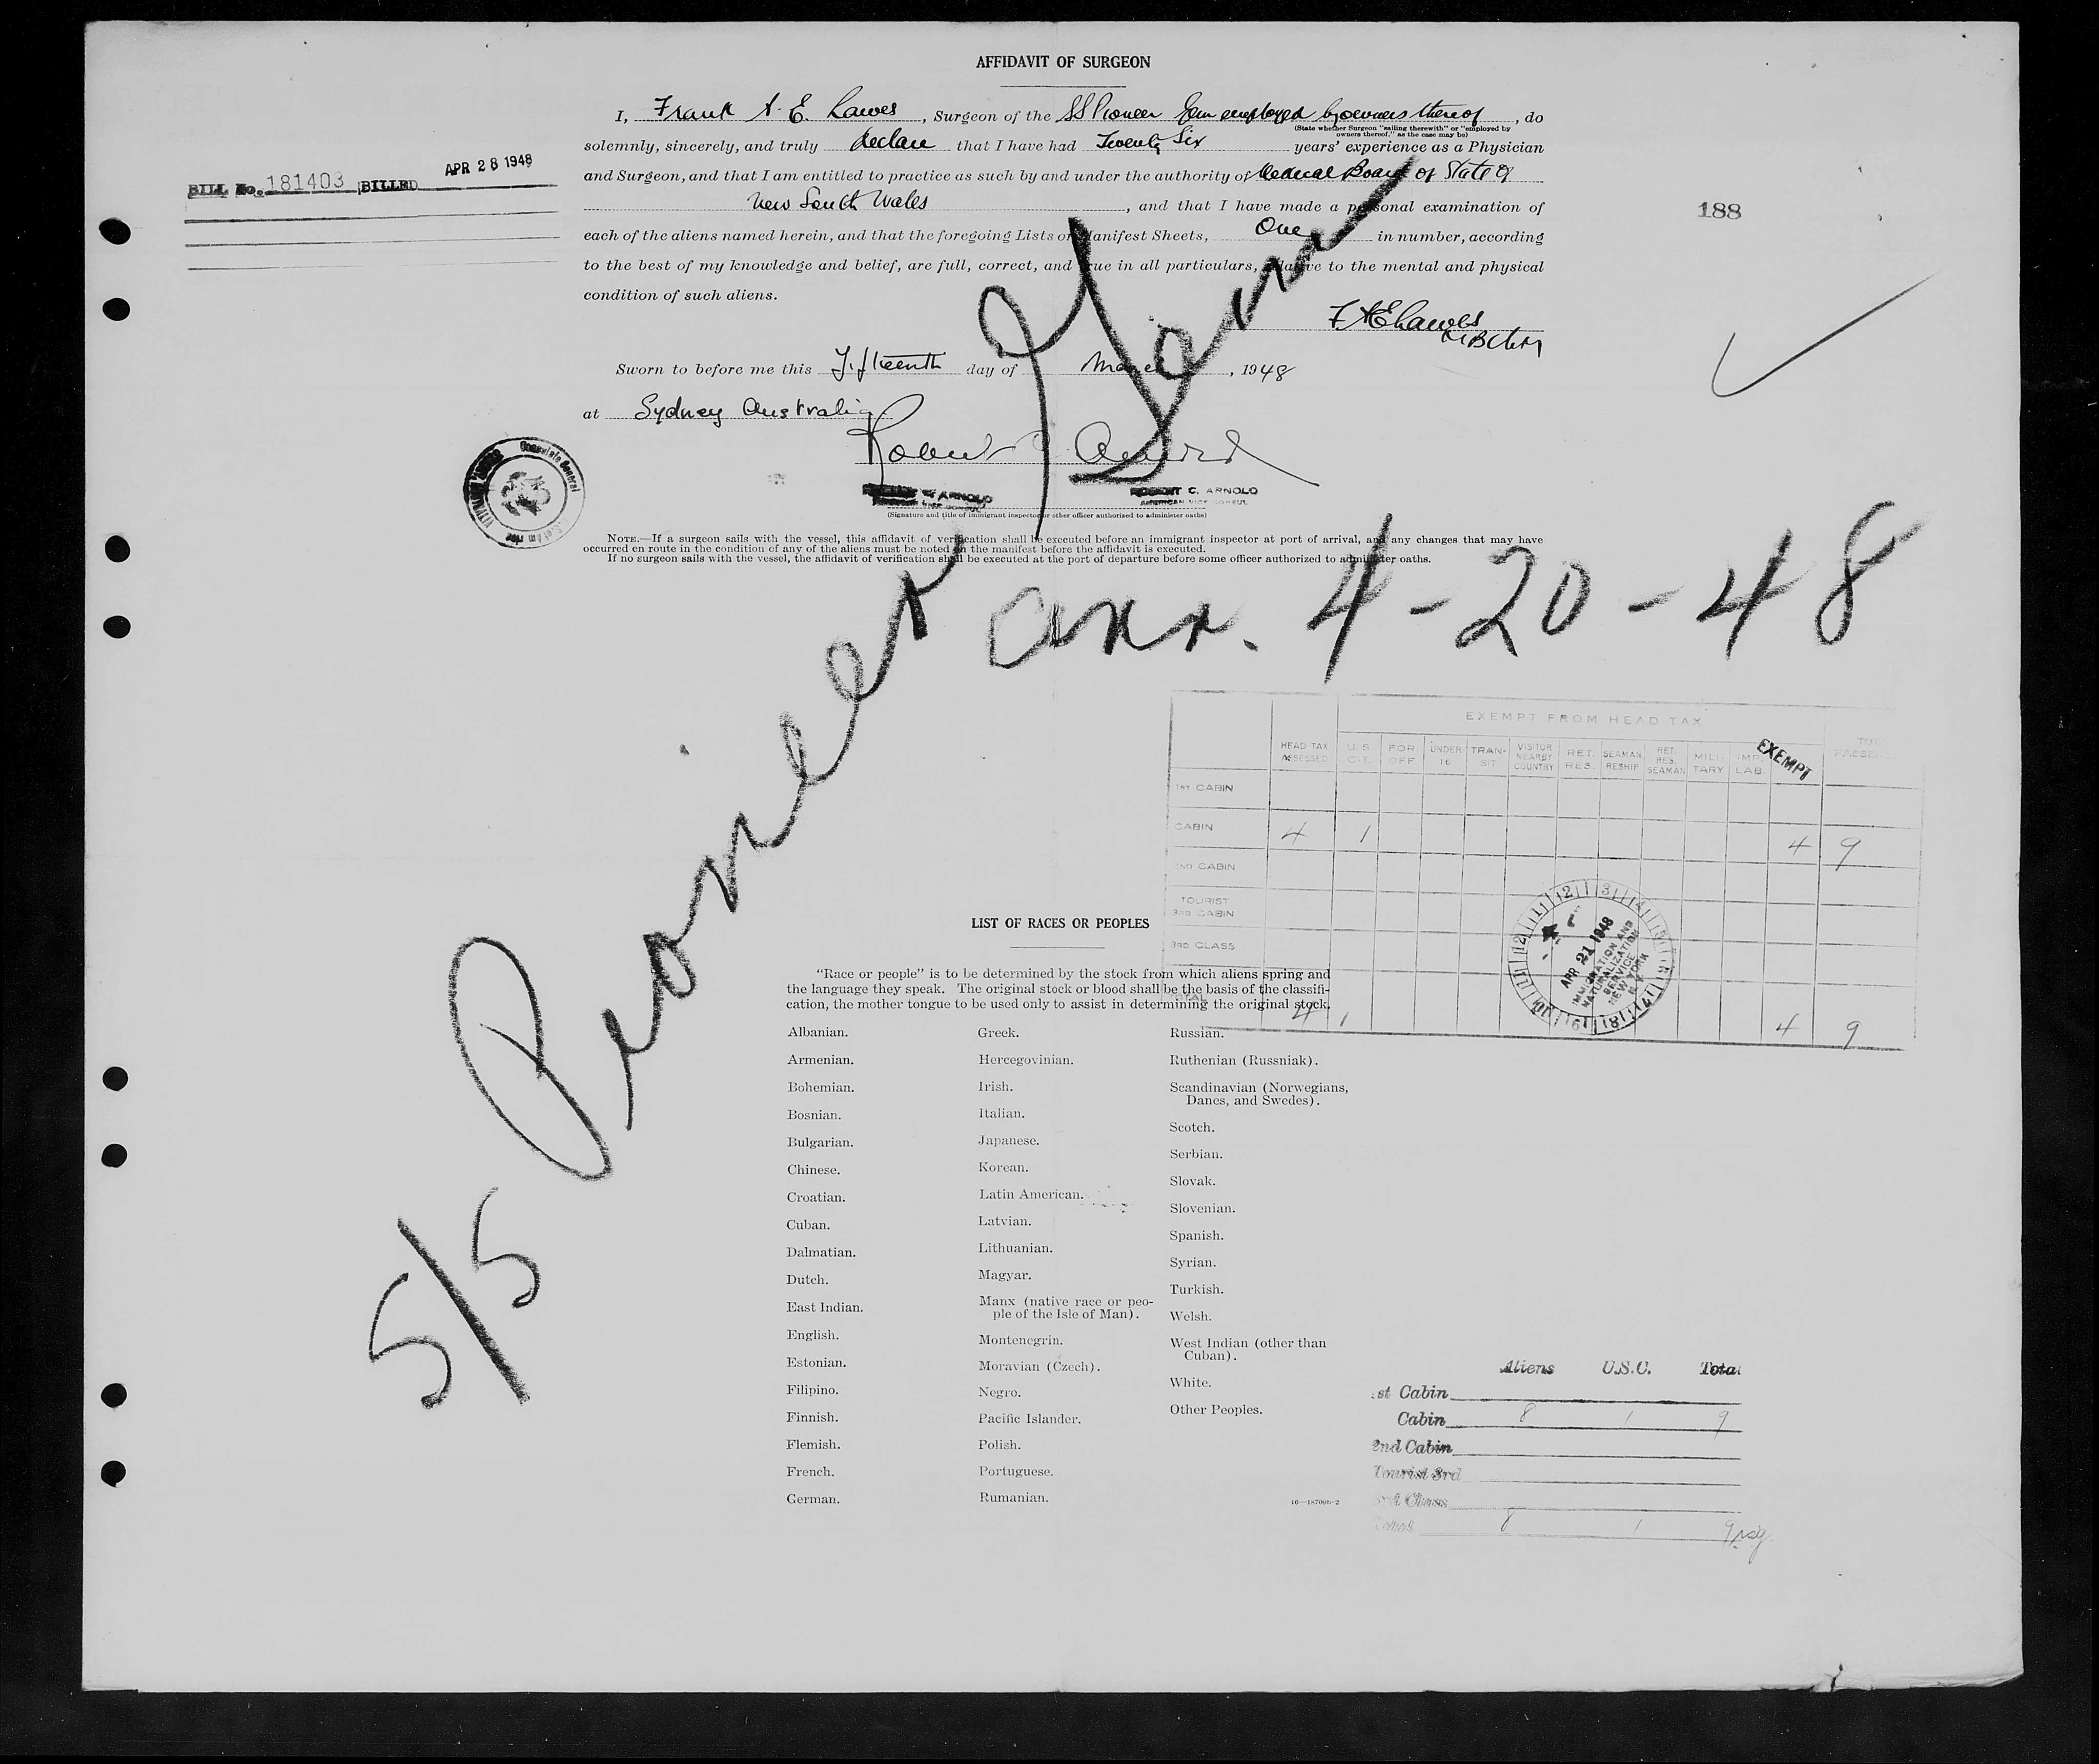 AFFIDAVIT OF SURGEON
I, Frank A. E. Lawes, Surgeon of the SS Pioneer Gem employed by owners thereof, do
(State whether Surgeon "sailing therewith" or "employed by
owners thereof," as the case may be)
solemnly, sincerely, and truly declare that I have had Twenty Six years' experience as a Physician
and Surgeon, and that I am entitled to practice as such by and under the authority of Medical Board of State of
New South Wales, and that I have made a personal examination of
each of the aliens named herein, and that the foregoing Lists or Manifest Sheets, One in number, according
to the best of my knowledge and belief, are full, correct, and true in all particulars, relative to the mental and physical
condition of such aliens.
F A E Lawes
MBChM
Sworn to before me this Fifteenth day of March, 1948
at Sydney Australia
Robert C. Arnold
ROBERT C. ARNOLD
AMERICAN VICE CONSUL
(Signature and title of immigrant inspector or other officer authorized to administer oaths)
NOTE.—If a surgeon sails with the vessel, this affidavit of verification shall be executed before an immigrant inspector at port of arrival, and any changes that may have
occurred en route in the condition of any of the aliens must be noted on the manifest before the affidavit is executed.
If no surgeon sails with the vessel, the affidavit of verification shall be executed at the port of departure before some officer authorized to administer oaths.
BILL No. 181403 BILLED APR 28 1948
188
Consulate General
S/S Pioneer Gem
arr. 4-20-48
EXEMPT FROM HEAD TAX
HEAD TAX ASSESSED U.S. CIT. FOR OFF UNDER 16 TRAN-SIT VISITOR NEARBY COUNTRY RET. RES. SEAMAN RESHIP RET. RES. SEAMAN MILI-TARY IMP. LAB. EXEMPT
1ST CABIN
CABIN 4 1 4 9
2ND CABIN
TOURIST 3RD CABIN
3RD CLASS
TOTAL 4 1 4 9
APR 21 1948
IMMIGRATION AND
NATURALIZATION
SERVICE
NEW YORK
N.Y.
LIST OF RACES OR PEOPLES
"Race or people" is to be determined by the stock from which aliens spring and
the language they speak. The original stock or blood shall be the basis of the classifi-
cation, the mother tongue to be used only to assist in determining the original stock.
Albanian.
Armenian.
Bohemian.
Bosnian.
Bulgarian.
Chinese.
Croatian.
Cuban.
Dalmatian.
Dutch.
East Indian.
English.
Estonian.
Filipino.
Finnish.
Flemish.
French.
German.
Greek.
Hercegovinian.
Irish.
Italian.
Japanese.
Korean.
Latin American.
Latvian.
Lithuanian.
Magyar.
Manx (native race or peo-
ple of the Isle of Man).
Montenegrin.
Moravian (Czech).
Negro.
Pacific Islander.
Polish.
Portuguese.
Rumanian.
Russian.
Ruthenian (Russniak).
Scandinavian (Norwegians,
Danes, and Swedes).
Scotch.
Serbian.
Slovak.
Slovenian.
Spanish.
Syrian.
Turkish.
Welsh.
West Indian (other than
Cuban).
White.
Other Peoples.
Aliens U.S.C. Total
1st Cabin
Cabin 8 1 9
2nd Cabin
Tourist 3rd
3rd Class
Total 8 1 9